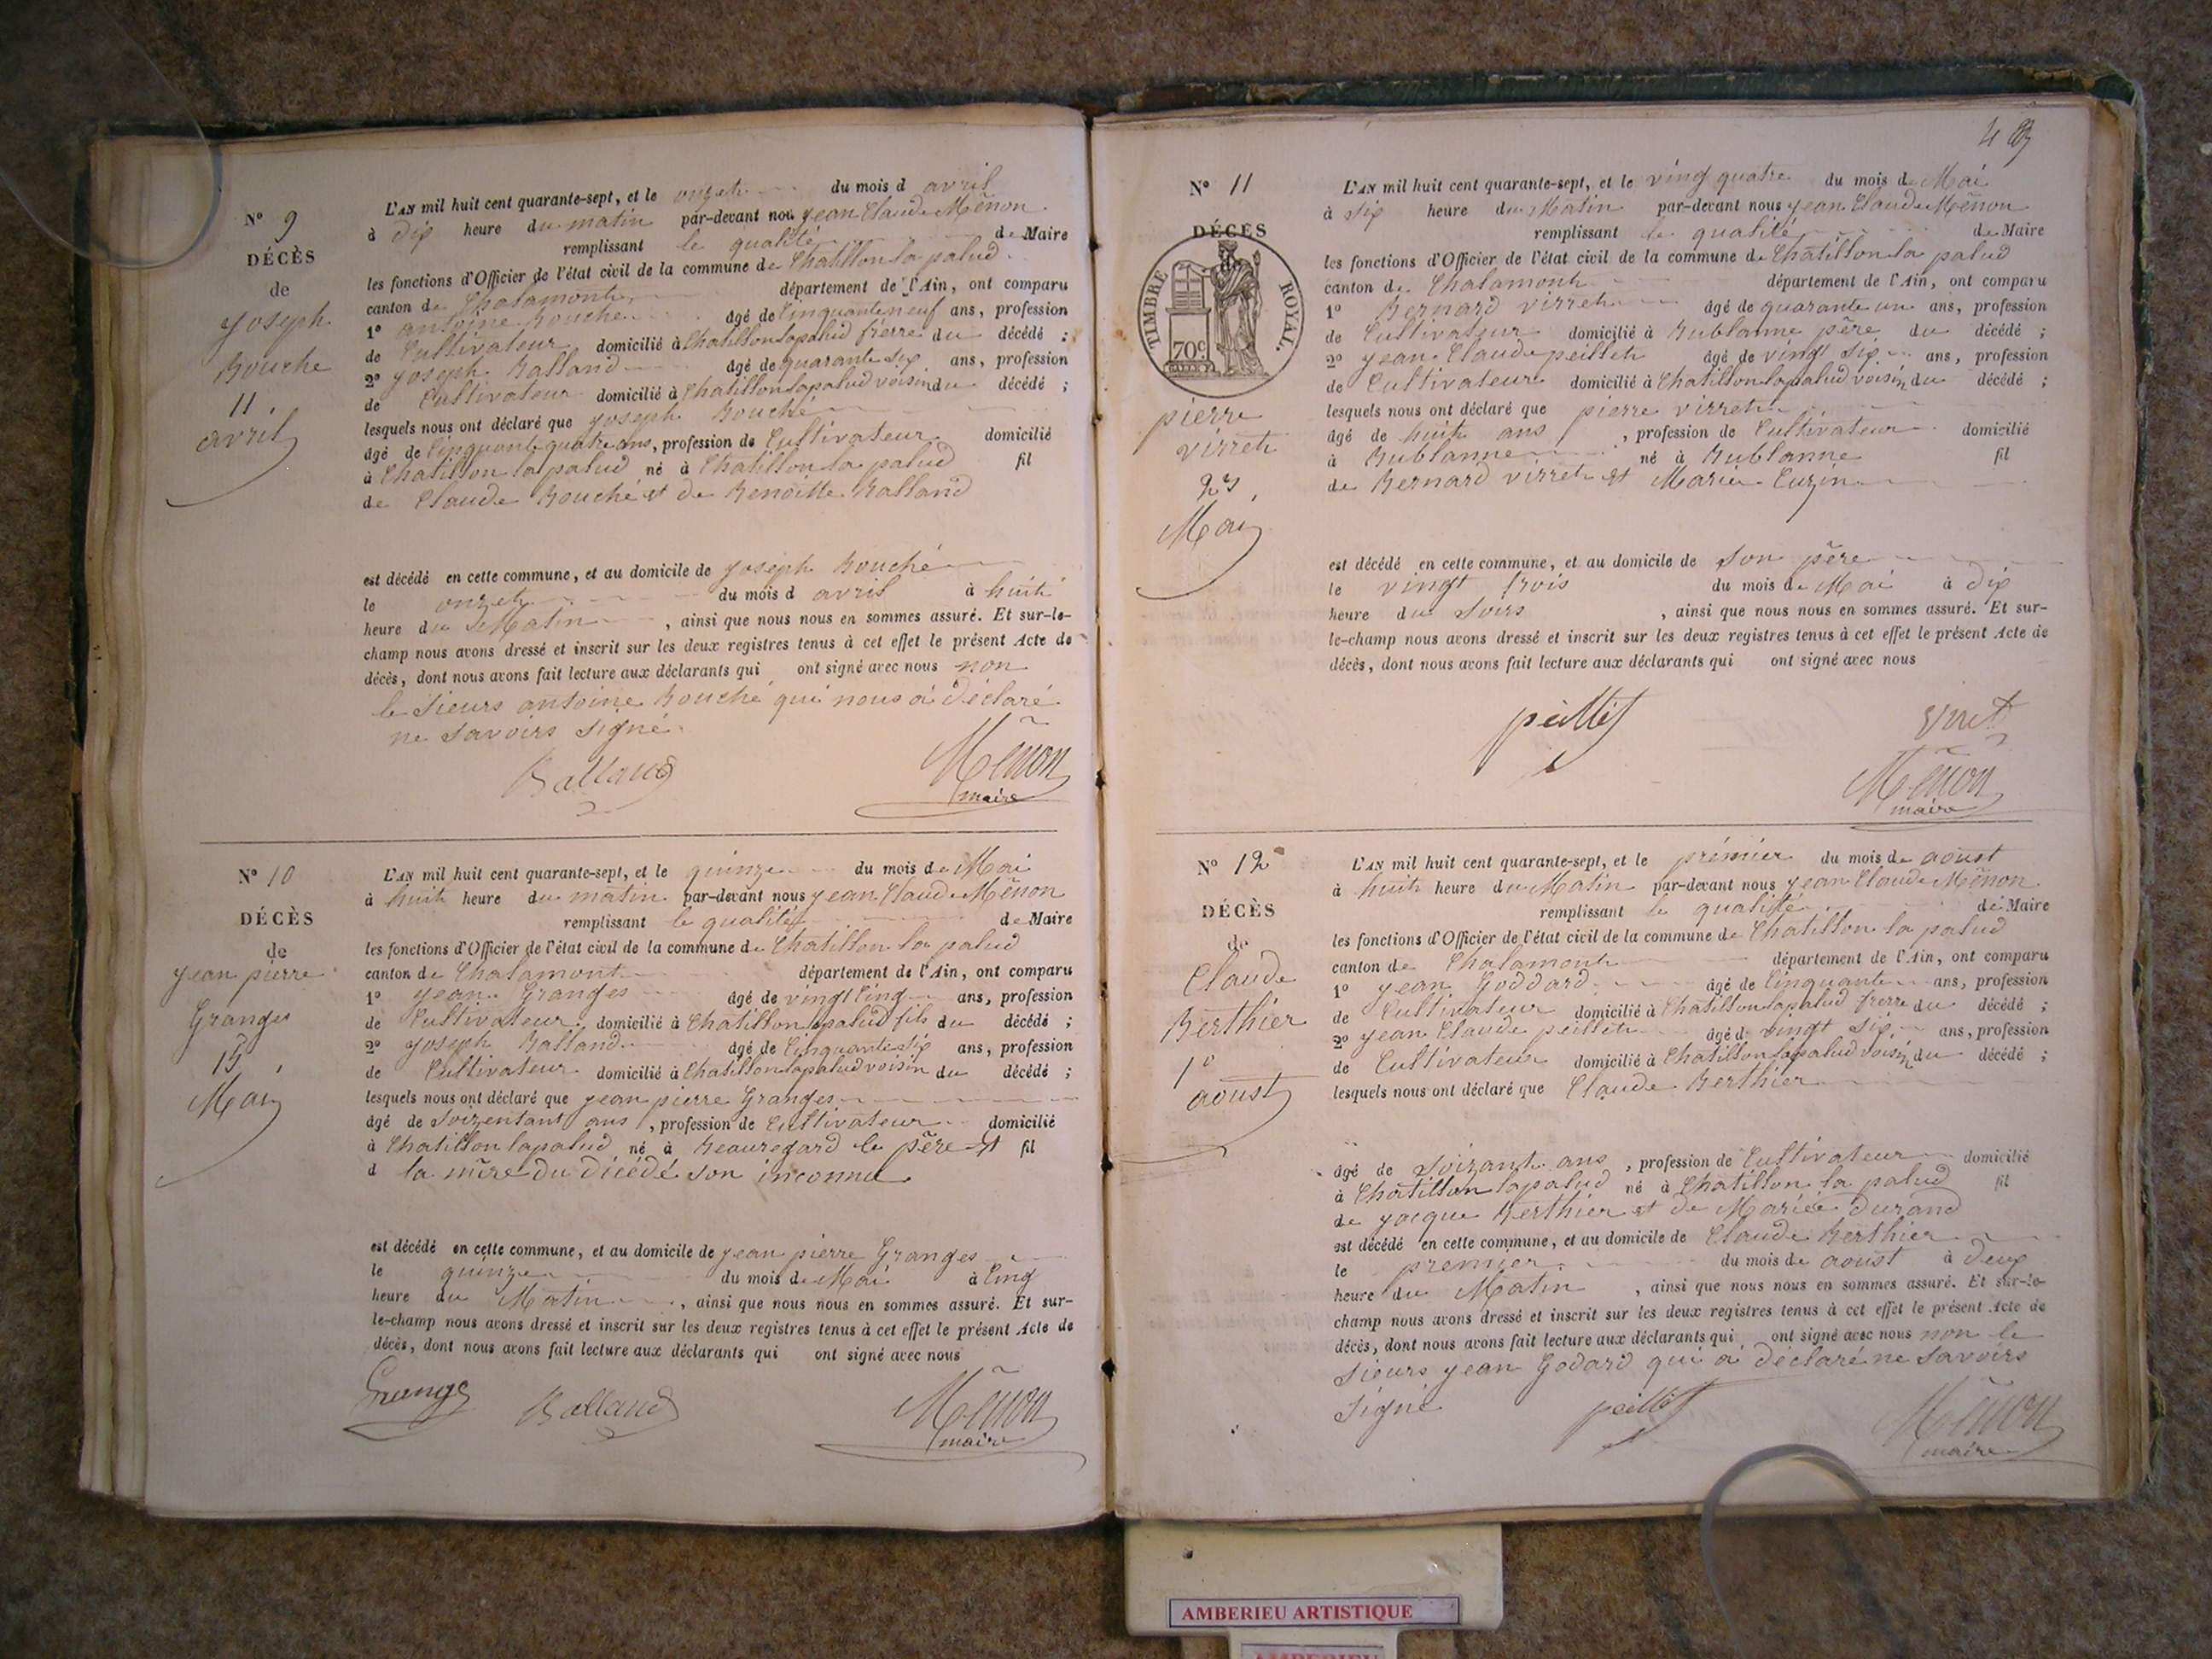 Nº 9
DÉCÈS
de
joseph
Bouché
11
avril
L'AN mil huit cent quarante-sept, et le onzeth du mois d avril
à dix heure du matin par-devant nou jean Claude Mēnon
remplissant le qualité de Maire
les fonctions d'Officier de l'état civil de la commune de Chatillon la palud
canton de Chalamont département de l'Ain, ont comparu
1º antoine Bouché âgé de Cinquanteneuf ans, profession
de Cultivateur domicilié à Chatillonlapalud frerre du décédé ;
2º joseph Balland âgé de quarante six ans, profession
de Cultivateur domicilié à Chatillonlapalud voisin du décédé ;
lesquels nous ont déclaré que joseph Bouché
âgé de Cinquantequatre ans, profession de Cultivateur domicilié
à Chatillon la palud né à Chatillon la palud fil
de Claude Bouché et de Benoitte Balland
est décédé en cette commune, et au domicile de joseph Bouché
le onzeth du mois d avril à huit
heure du Matin, ainsi que nous nous en sommes assuré. Et sur-le-
champ nous avons dressé et inscrit sur les deux registres tenus à cet effet le présent Acte de
décès, dont nous avons fait lecture aux déclarants qui ont signé avec nous non
le Sieurs antoine Bouché qui nous a déclaré
ne savoirs signé
Balland
Mēnon
maire
Nº 10
DÉCÈS
de
jean pierre
Granges
15
Mai
L'AN mil huit cent quarante-sept, et le quinze du mois de Mai
à huit heure du matin par-devant nous jean Claude Mēnon
remplissant le qualité de Maire
les fonctions d'Officier de l'état civil de la commune de Chatillon la palud
canton de Chalamont département de l'Ain, ont comparu
1º jean Granges âgé de vingt Cinq ans, profession
de Cultivateur domicilié à Chatillon lapalud fils du décédé ;
2º joseph Balland âgé de Cinquante six ans, profession
de Cultivateur domicilié à Chatillonlapalud voisin du décédé ;
lesquels nous ont déclaré que jean pierre Granges
âgé de Soizentans ans, profession de Cultivateur domicilié
à Chatillon lapalud né à Beauregard le père et fil
d la mère du décédé son inconnu
est décédé en cette commune, et au domicile de jean pierre Granges
le quinze du mois de Mai à Cinq
heure du Matin, ainsi que nous nous en sommes assuré. Et sur-
le-champ nous avons dressé et inscrit sur les deux registres tenus à cet effet le présent Acte de
décès, dont nous avons fait lecture aux déclarants qui ont signé avec nous
Grange
Balland
Mēnon
maire
Nº 11
DÉCÈS
TIMBRE ROYAL.
70c
pierre
virret
23
Mai
L'AN mil huit cent quarante-sept, et le ving quatre du mois de Mai
à six heure du Matin par-devant nous jean Claude Mēnon
remplissant le qualité de Maire
les fonctions d'Officier de l'état civil de la commune de Chatillon la palud
canton de Chalamont département de l'Ain, ont comparu
1º Bernard virret âgé de quarante un ans, profession
de Cultivateur domicilié à Bublanne père du décédé ;
2º jean Claude peillet âgé de vingt six ans, profession
de Cultivateur domicilié à Chatillonlapalud voisin du décédé ;
lesquels nous ont déclaré que pierre virret
âgé de huit ans, profession de Cultivateur domicilié
à Bublanne né à Bublanne fil
de Bernard virret et Marie Cuzin
est décédé en cette commune, et au domicile de son père
le vingt trois du mois de Mai à dix
heure du soirs, ainsi que nous nous en sommes assuré. Et sur-
le-champ nous avons dressé et inscrit sur les deux registres tenus à cet effet le présent Acte de
décès, dont nous avons fait lecture aux déclarants qui ont signé avec nous
peillet
Mēnon
maire
Nº 12
DÉCÈS
de
Claude
Berthier
1º
aoust
L'AN mil huit cent quarante-sept, et le prémier du mois de aoust
à huit heure du Matin par-devant nous jean Claude Mēnon
remplissant le qualité de Maire
les fonctions d'Officier de l'état civil de la commune de Chatillon la palud
canton de Chalamont département de l'Ain, ont comparu
1º jean Goddard âgé de Cinquante ans, profession
de Cultivateur domicilié à Chatillonlapalud frerre du décédé ;
2º jean Claude peillet âgé d vingt six ans, profession
de Cultivateur domicilié à Chatillon lapalud voisin du décédé ;
lesquels nous ont déclaré que Claude Berthier
âgé de Soizant ans, profession de Cultivateur domicilié
à Chatillon lapalud né à Chatillon la palud fil
de jacque Berthier et de Mariée Durand
est décédé en cette commune, et au domicile de Claude Berthier
le premier du mois de aoust à deux
heure du Matin, ainsi que nous nous en sommes assuré. Et sur-le-
champ nous avons dressé et inscrit sur les deux registres tenus à cet effet le présent Acte de
décès, dont nous avons fait lecture aux déclarants qui ont signé avec nous non le
Sieurs jean Godard qui a déclaré ne savoirs
signé
peillet
Mēnon
maire
AMBERIEU ARTISTIQUE
AMBERIEU